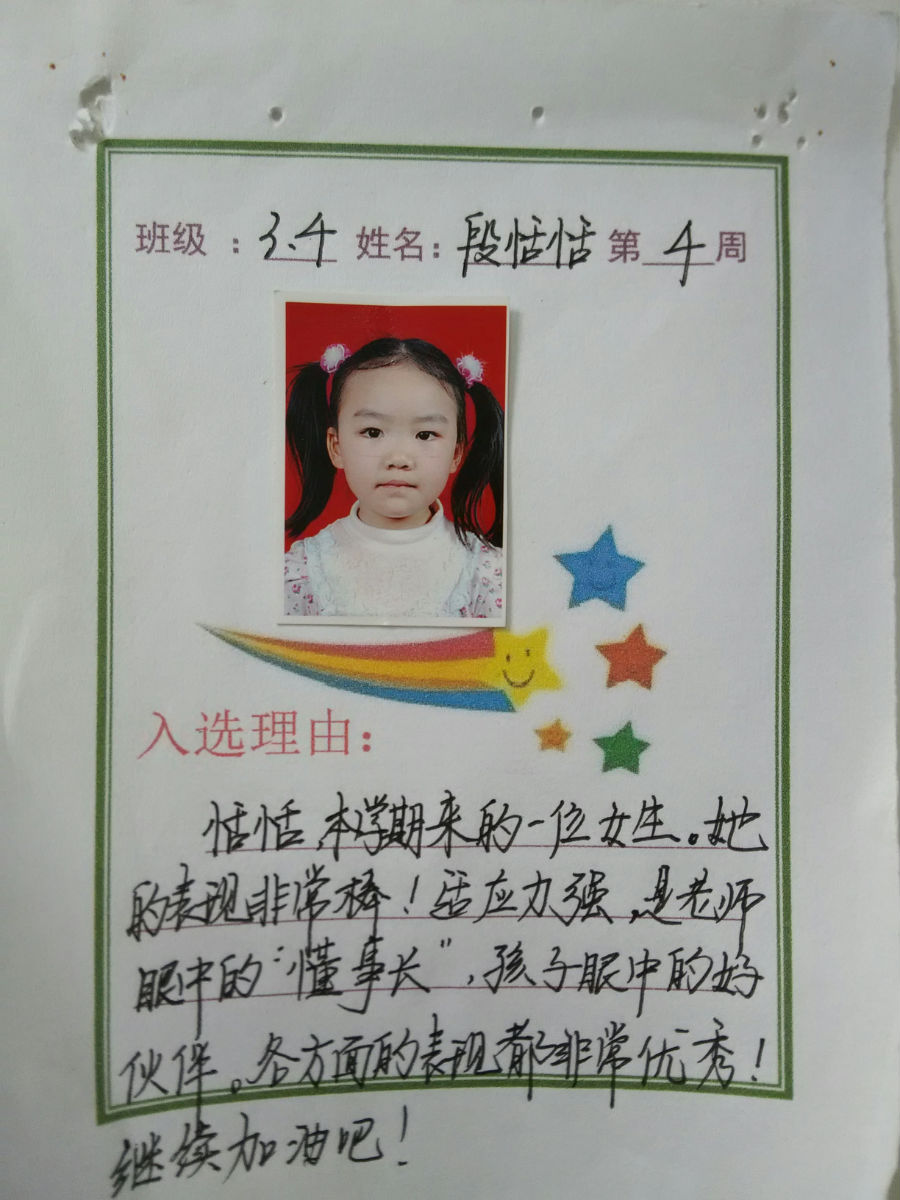 班级：3.4 姓名：段恬恬 第4周
入选理由：
恬恬,本学期来的一位女生。她
的表现非常棒！适应力强,是老师
眼中的“懂事长”,孩子眼中的好
伙伴。各方面的表现都非常优秀！
继续加油吧！